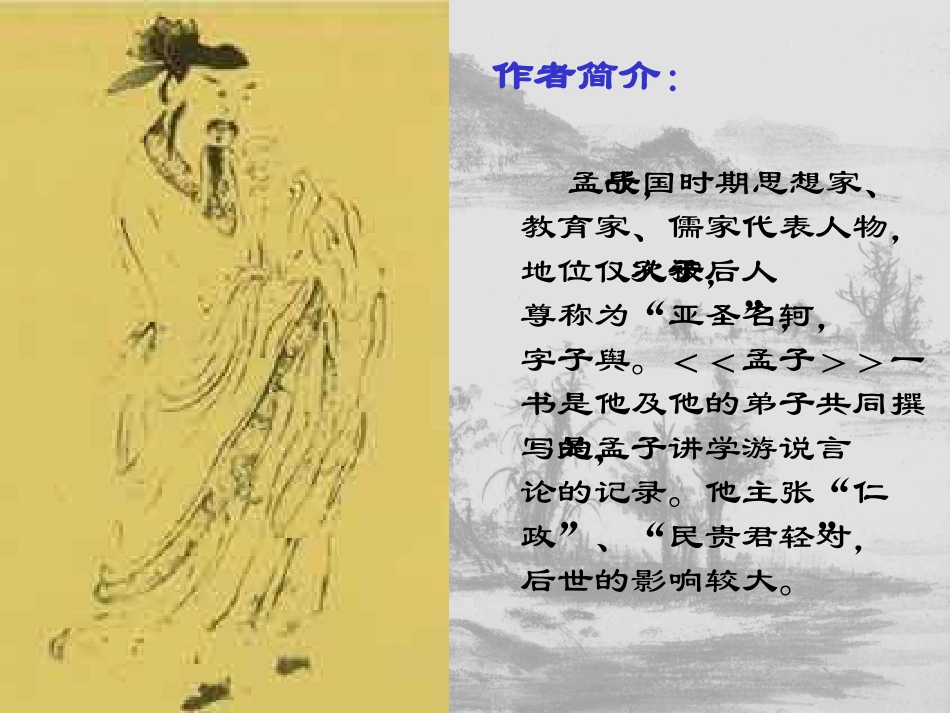 作者简介：
孟子,战国时期思想家、
教育家、儒家代表人物,
地位仅次于孔子,后人
尊称为“亚圣”,名轲,
字子舆。<<孟子>>一
书是他及他的弟子共同撰
写的,是孟子讲学游说言
论的记录。他主张“仁
政”、“民贵君轻”,对
后世的影响较大。